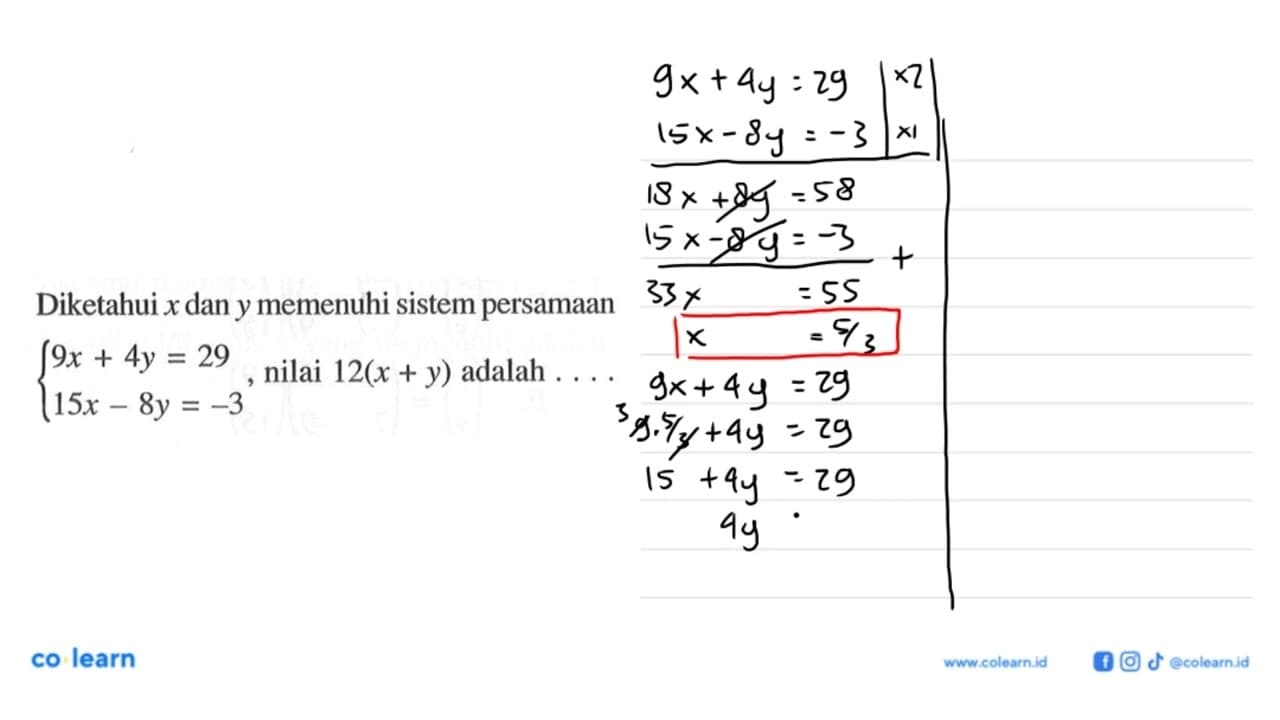 Diketahui x dan y memenuhi sistem persamaan
{9x + 4y = 29
15x – 8y = –3
, nilai 12(x + y) adalah . . . .
9x + 4y = 29 | x2 |
15x - 8y = -3 | x1 |
18x + 8y = 58
15x - 8y = -3
+
33x = 55
x = 5/3
9x + 4y = 29
3
9.5/3 + 4y = 29
15 + 4y = 29
4y
co learn
www.colearn.id
@colearn.id